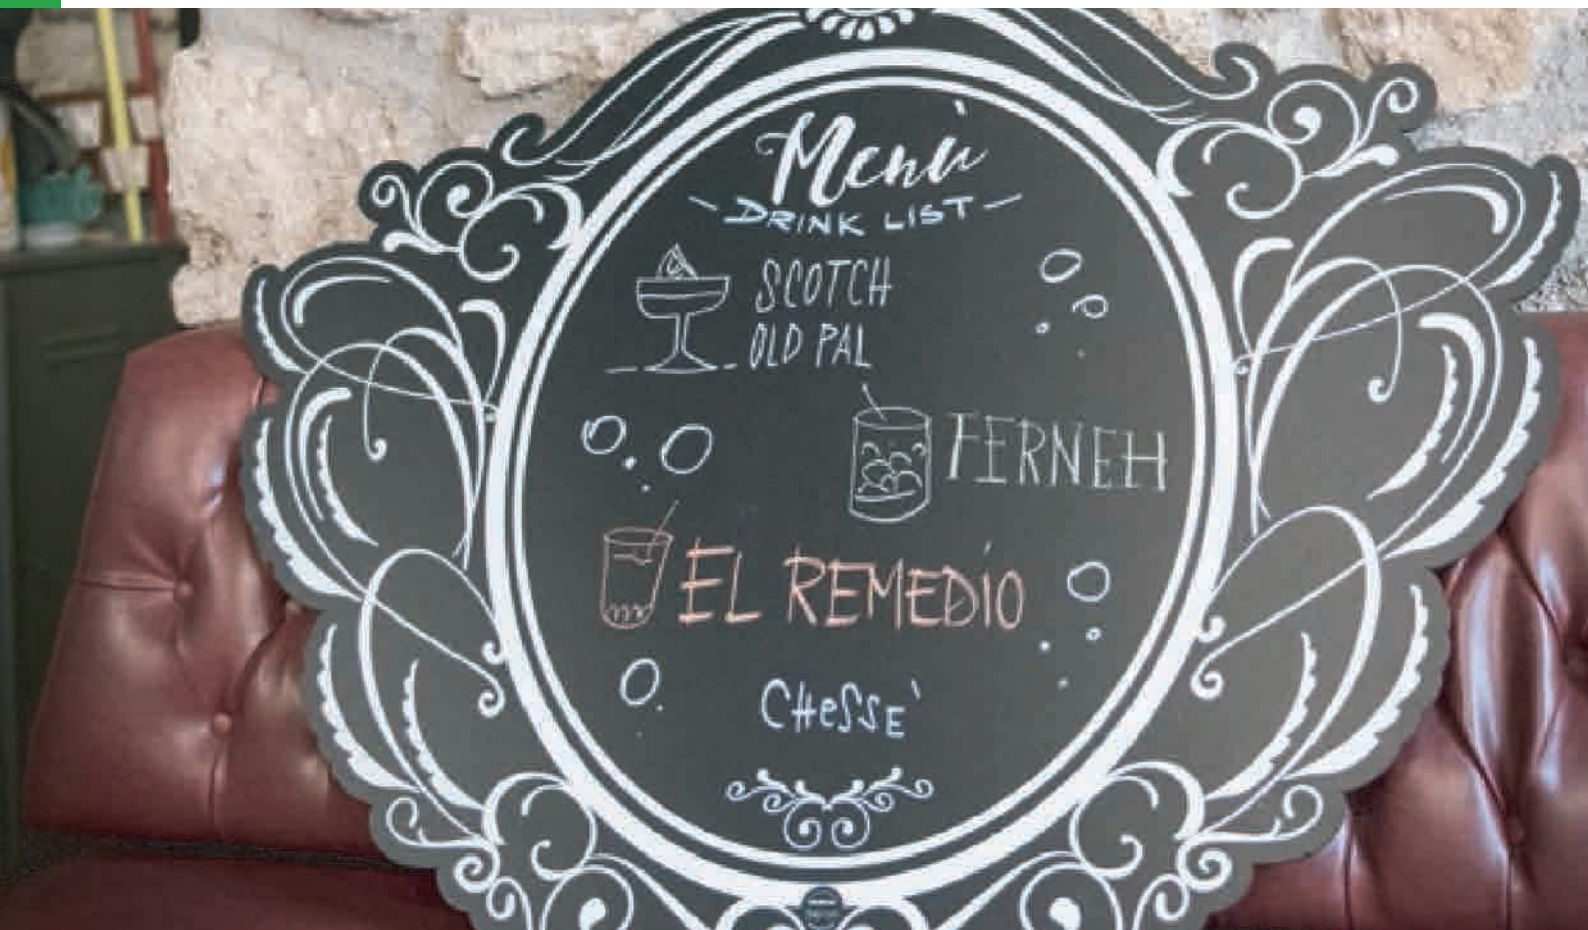 Menù
- DRINK LIST -
SCOTCH
OLD PAL
FERNEH
EL REMEDIO
CHeSSE'